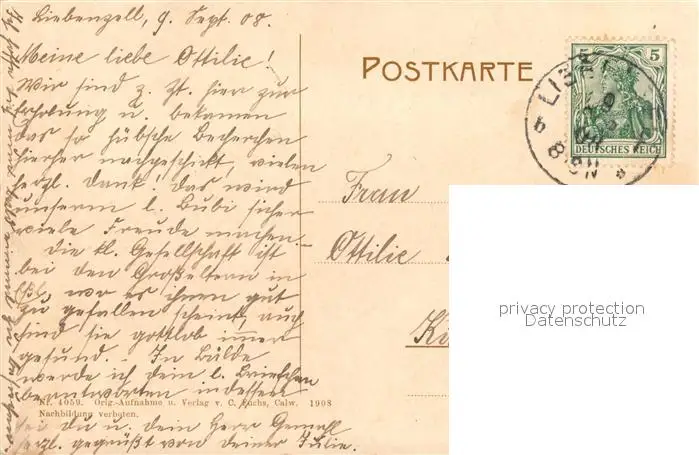 Liebenzell, 9. Sept. 08.
Meine liebe Ottilie!
Wir sind z. Zt. hier zur
Erholung u. bekamen
das so hübsche Becherchen
hierher nachgeschickt, vielen
herzl. Dank! Das wird
unserm l. Bubi sicher
viele Freude machen. –
Die kl. Gesellschaft ist
bei den Großeltern in
wo es ihnen gut
zu gefallen scheint, auch
sind sie gottlob immer
gesund. – In Bälde
werde ich dein l. Briefchen
beantworten indessen
sei du u. dein Herr Gemahl
herzl. gegrüßt von deiner Julie.
Nr. 4059. Orig.-Aufnahme u. Verlag v. C. Fuchs, Calw. 1908
Nachbildung verboten.
POSTKARTE
5 5
DEUTSCHES REICH
Frau
Ottilie
privacy protection
Datenschutz